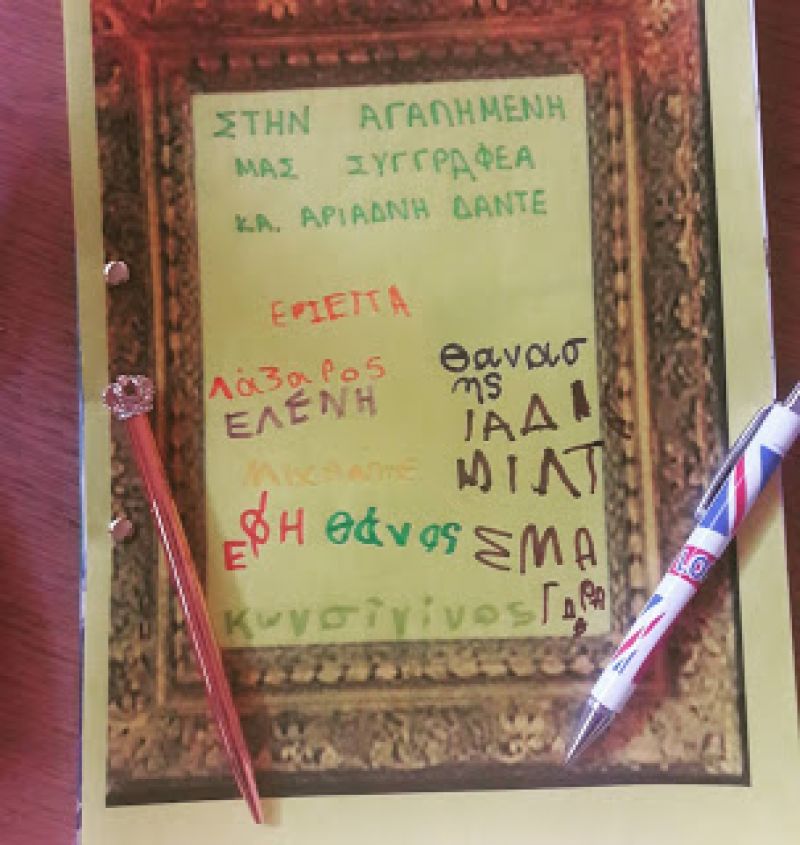 ΣΤΗΝ ΑΓΑΠΗΜΕΝΗ
ΜΑΣ ΣΥΓΓΡΑΦΕΑ
ΚΑ. ΑΡΙΑΔΝΗ ΔΑΝΤΕ
ΕΡΙΕΤΤΑ
Λάζαρος
ΕΛΕΝΗ
ΕΦΗ
θάνος
Θανασ
ης
ΙΑΔΙ
ΜΙΛΤ
ΕΜΑ